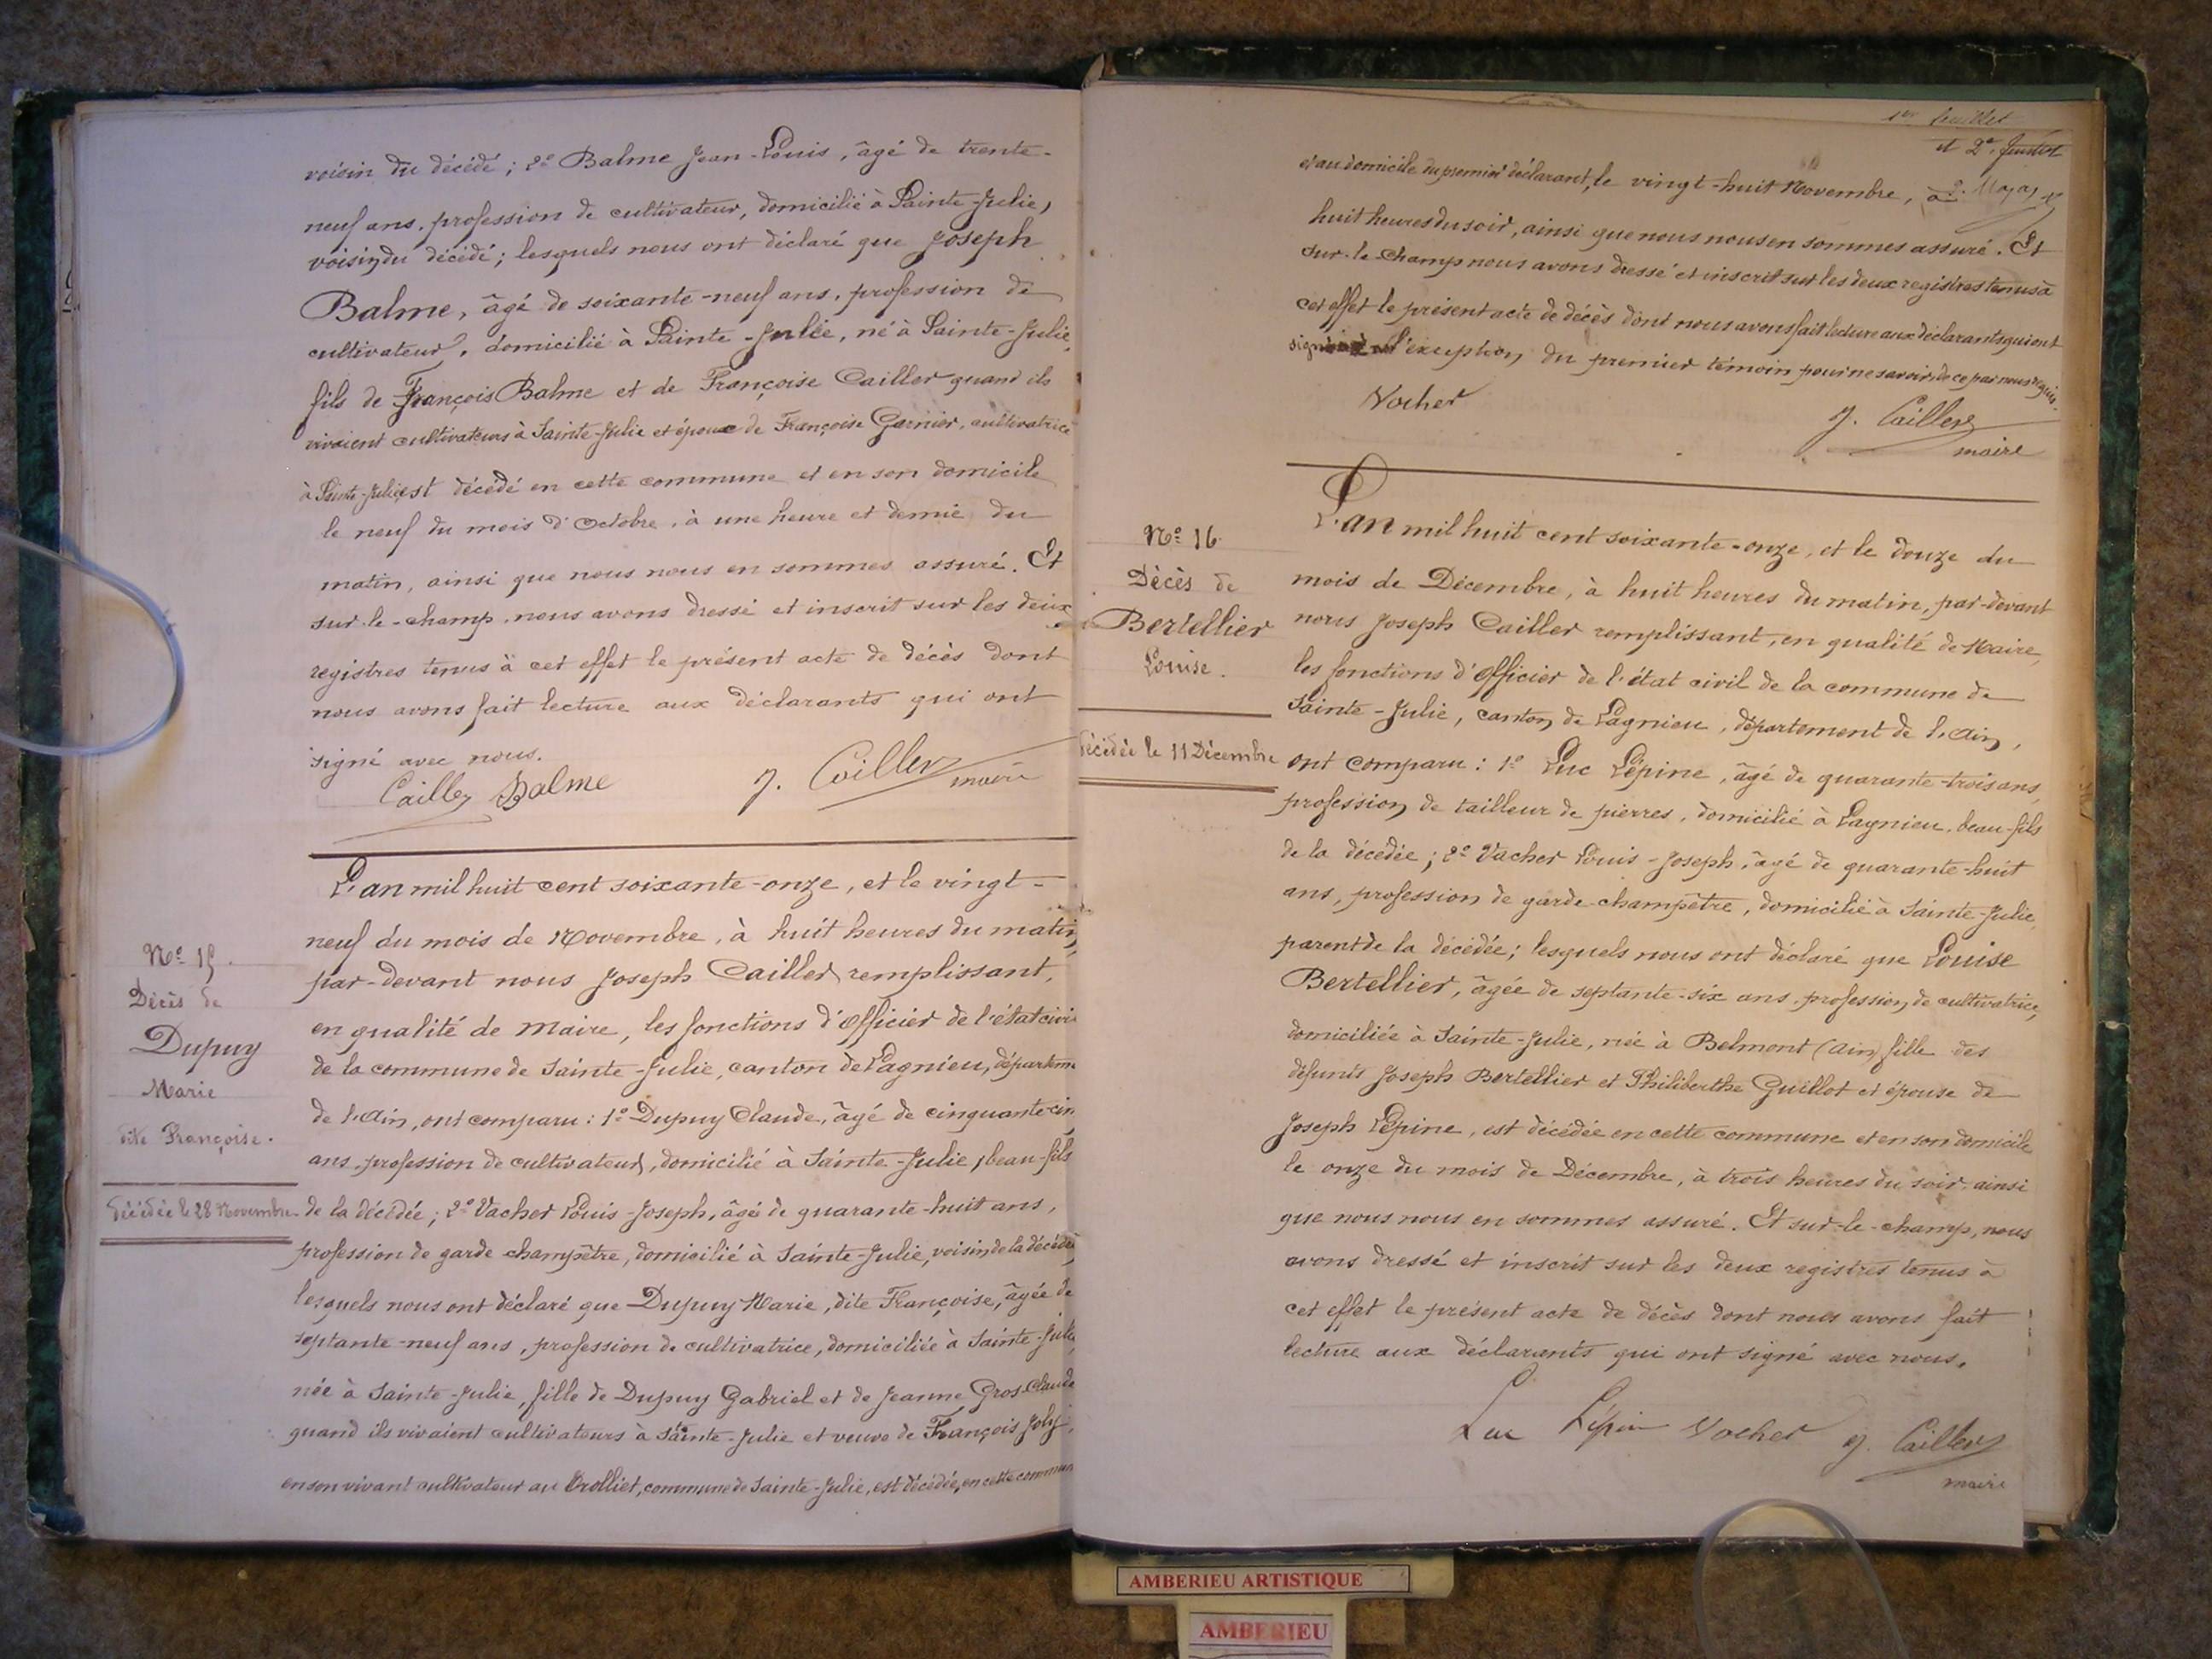 voisin du décédé ; 2º Balme Jean-Louis, âgé de trente-
neuf ans, profession de cultivateur, domicilié à Sainte-Julie,
voisin du décédé ; lesquels nous ont déclaré que Joseph
Balme, âgé de soixante-neuf ans, profession de
cultivateur, domicilié à Sainte-Julie, né à Sainte-Julie,
fils de François Balme et de Françoise Cailler quand ils
vivaient cultivateurs à Sainte-Julie et époux de Françoise Garnier, cultivatrice
à Sainte-Julie est décédé en cette commune et en son domicile
le neuf du mois d'Octobre, à une heure et demie du
matin, ainsi que nous nous en sommes assuré. Et
sur-le-champ, nous avons dressé et inscrit sur les deux
registres tenus à cet effet le présent acte de décès dont
nous avons fait lecture aux déclarants qui ont
signé avec nous.
Cailler Balme J. Cailler
maire
Nº 15.
Décès de
Dupuy
Marie
dite Françoise.
Décédée le 28 Novembre
L'an mil huit cent soixante-onze, et le vingt-
neuf du mois de Novembre, à huit heures du matin,
par-devant nous Joseph Cailler remplissant,
en qualité de Maire, les fonctions d'Officier de l'état civi
de la commune de Sainte-Julie, canton de Lagnieu, départeme
de l'Ain, ont comparu : 1º Dupuy Claude, âgé de cinquante-cin
ans, profession de cultivateur, domicilié à Sainte-Julie, beau-fils
de la décédée ; 2º Vacher Louis-Joseph, âgé de quarante-huit ans,
profession de garde champêtre, domicilié à Sainte-Julie, voisin de la décédée
lesquels nous ont déclaré que Dupuy Marie, dite Françoise, âgée de
septante-neuf ans, profession de cultivatrice, domiciliée à Sainte-Julie,
née à Sainte-Julie, fille de Dupuy Gabriel et de Jeanne Gros-Claude
quand ils vivaient cultivateurs à Sainte-Julie et veuve de François Joly,
en son vivant cultivateur au Trolliet, commune de Sainte-Julie, est décédée, en cette commun
1er feuillet
et 2e feuillet
et au domicile du premier déclarant, le vingt-huit Novembre, à
huit heures du soir, ainsi que nous nous en sommes assuré. Et
sur-le-champ nous avons dressé et inscrit sur les deux registres tenus à
cet effet le présent acte de décès dont nous avons fait lecture aux déclarants qui ont
signé à l'exception du premier témoin pour ne savoir, de ce par nous requis.
Vacher J. Cailler
maire
Nº 16.
Décès de
Bertellier
Louise.
Décédée le 11 Décembre
L'an mil huit cent soixante-onze, et le douze du
mois de Décembre, à huit heures du matin, par-devant
nous Joseph Cailler remplissant, en qualité de Maire,
les fonctions d'Officier de l'état civil de la commune de
Sainte-Julie, canton de Lagnieu, département de l'Ain,
ont comparu : 1º Luc Lépine, âgé de quarante-trois ans,
profession de tailleur de pierres, domicilié à Lagnieu, beau-fils
de la décédée ; 2º Vacher Louis-Joseph, âgé de quarante-huit
ans, profession de garde-champêtre, domicilié à Sainte-Julie,
parent de la décédée ; lesquels nous ont déclaré que Louise
Bertellier, âgée de septante-six ans, profession de cultivatrice,
domiciliée à Sainte-Julie, née à Belmont (Ain) fille des
défunts Joseph Bertellier et Philiberthe Guillot et épouse de
Joseph Lépine, est décédée en cette commune et en son domicile
le onze du mois de Décembre, à trois heures du soir, ainsi
que nous nous en sommes assuré. Et sur-le-champ, nous
avons dressé et inscrit sur les deux registres tenus à
cet effet le présent acte de décès dont nous avons fait
lecture aux déclarants qui ont signé avec nous.
Luc Lépin Vacher J. Cailler
maire
AMBERIEU ARTISTIQUE
AMBERIEU